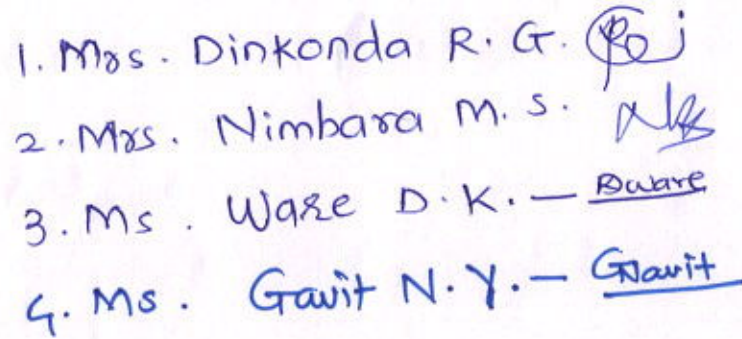 1. Mrs. Dinkonda R. G.
2. Mrs. Nimbara M. S.
3. Ms. Ware D. K. — Dware
4. Ms. Gavit N. Y. — GNavit